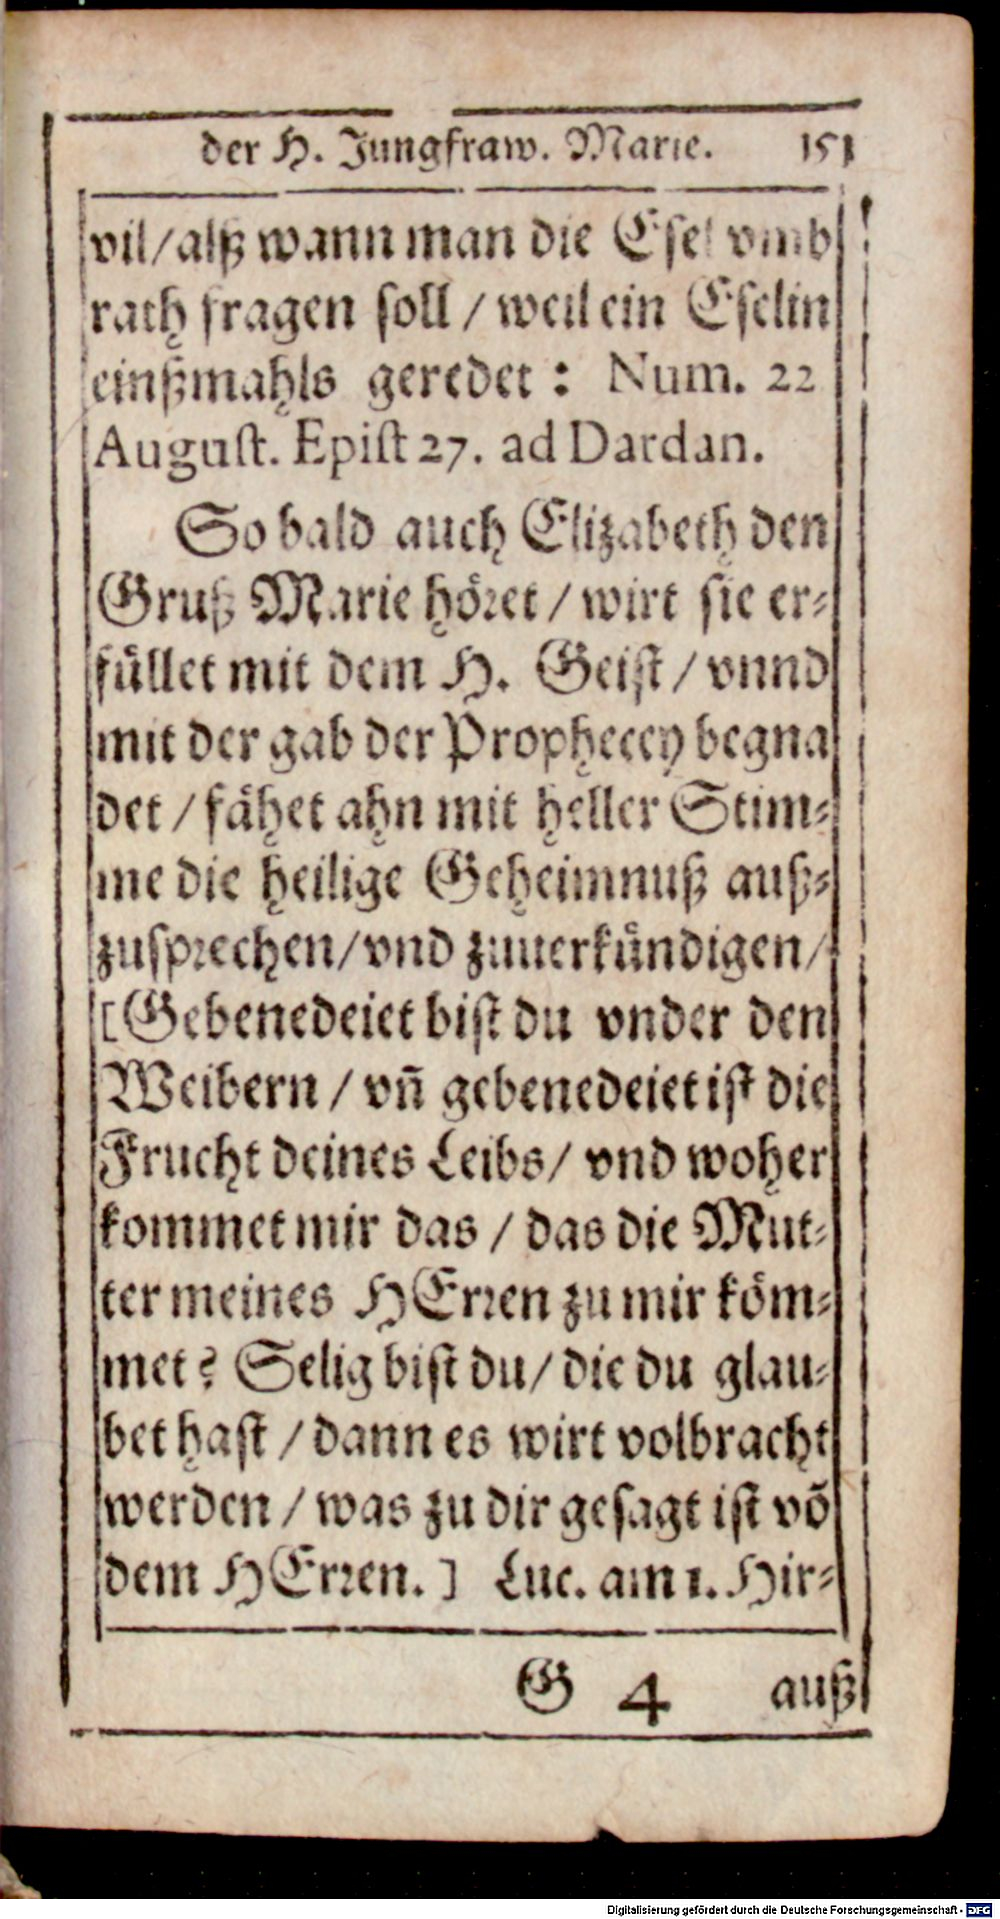 der H. Jungfraw. Marie. 151
vil/alß wann man die Esel vmb
rath fragen soll / weil ein Eselin
einßmahls geredet : Num. 22
August. Epist 27. ad Dardan.
So bald auch Elizabeth den
Gruß Marie höret / wirt sie er-
füllet mit dem H. Geist / vnnd
mit der gab der Prophecey begna
det / fähet ahn mit heller Stim-
me die heilige Geheimnuß auß-
zusprechen/vnd zuuerkündigen/
[Gebenedeiet bist du vnder den
Weibern / vn̄ gebenedeiet ist die
Frucht deines Leibs/ vnd woher
kommet mir das / das die Mut-
ter meines HErren zu mir köm-
met? Selig bist du/ die du glau-
bet hast / dann es wirt volbracht
werden / was zu dir gesagt ist võ
dem HErren. ] Luc. am 1. Hir-
G 4 auß
Digitalisierung gefördert durch die Deutsche Forschungsgemeinschaft - DFG